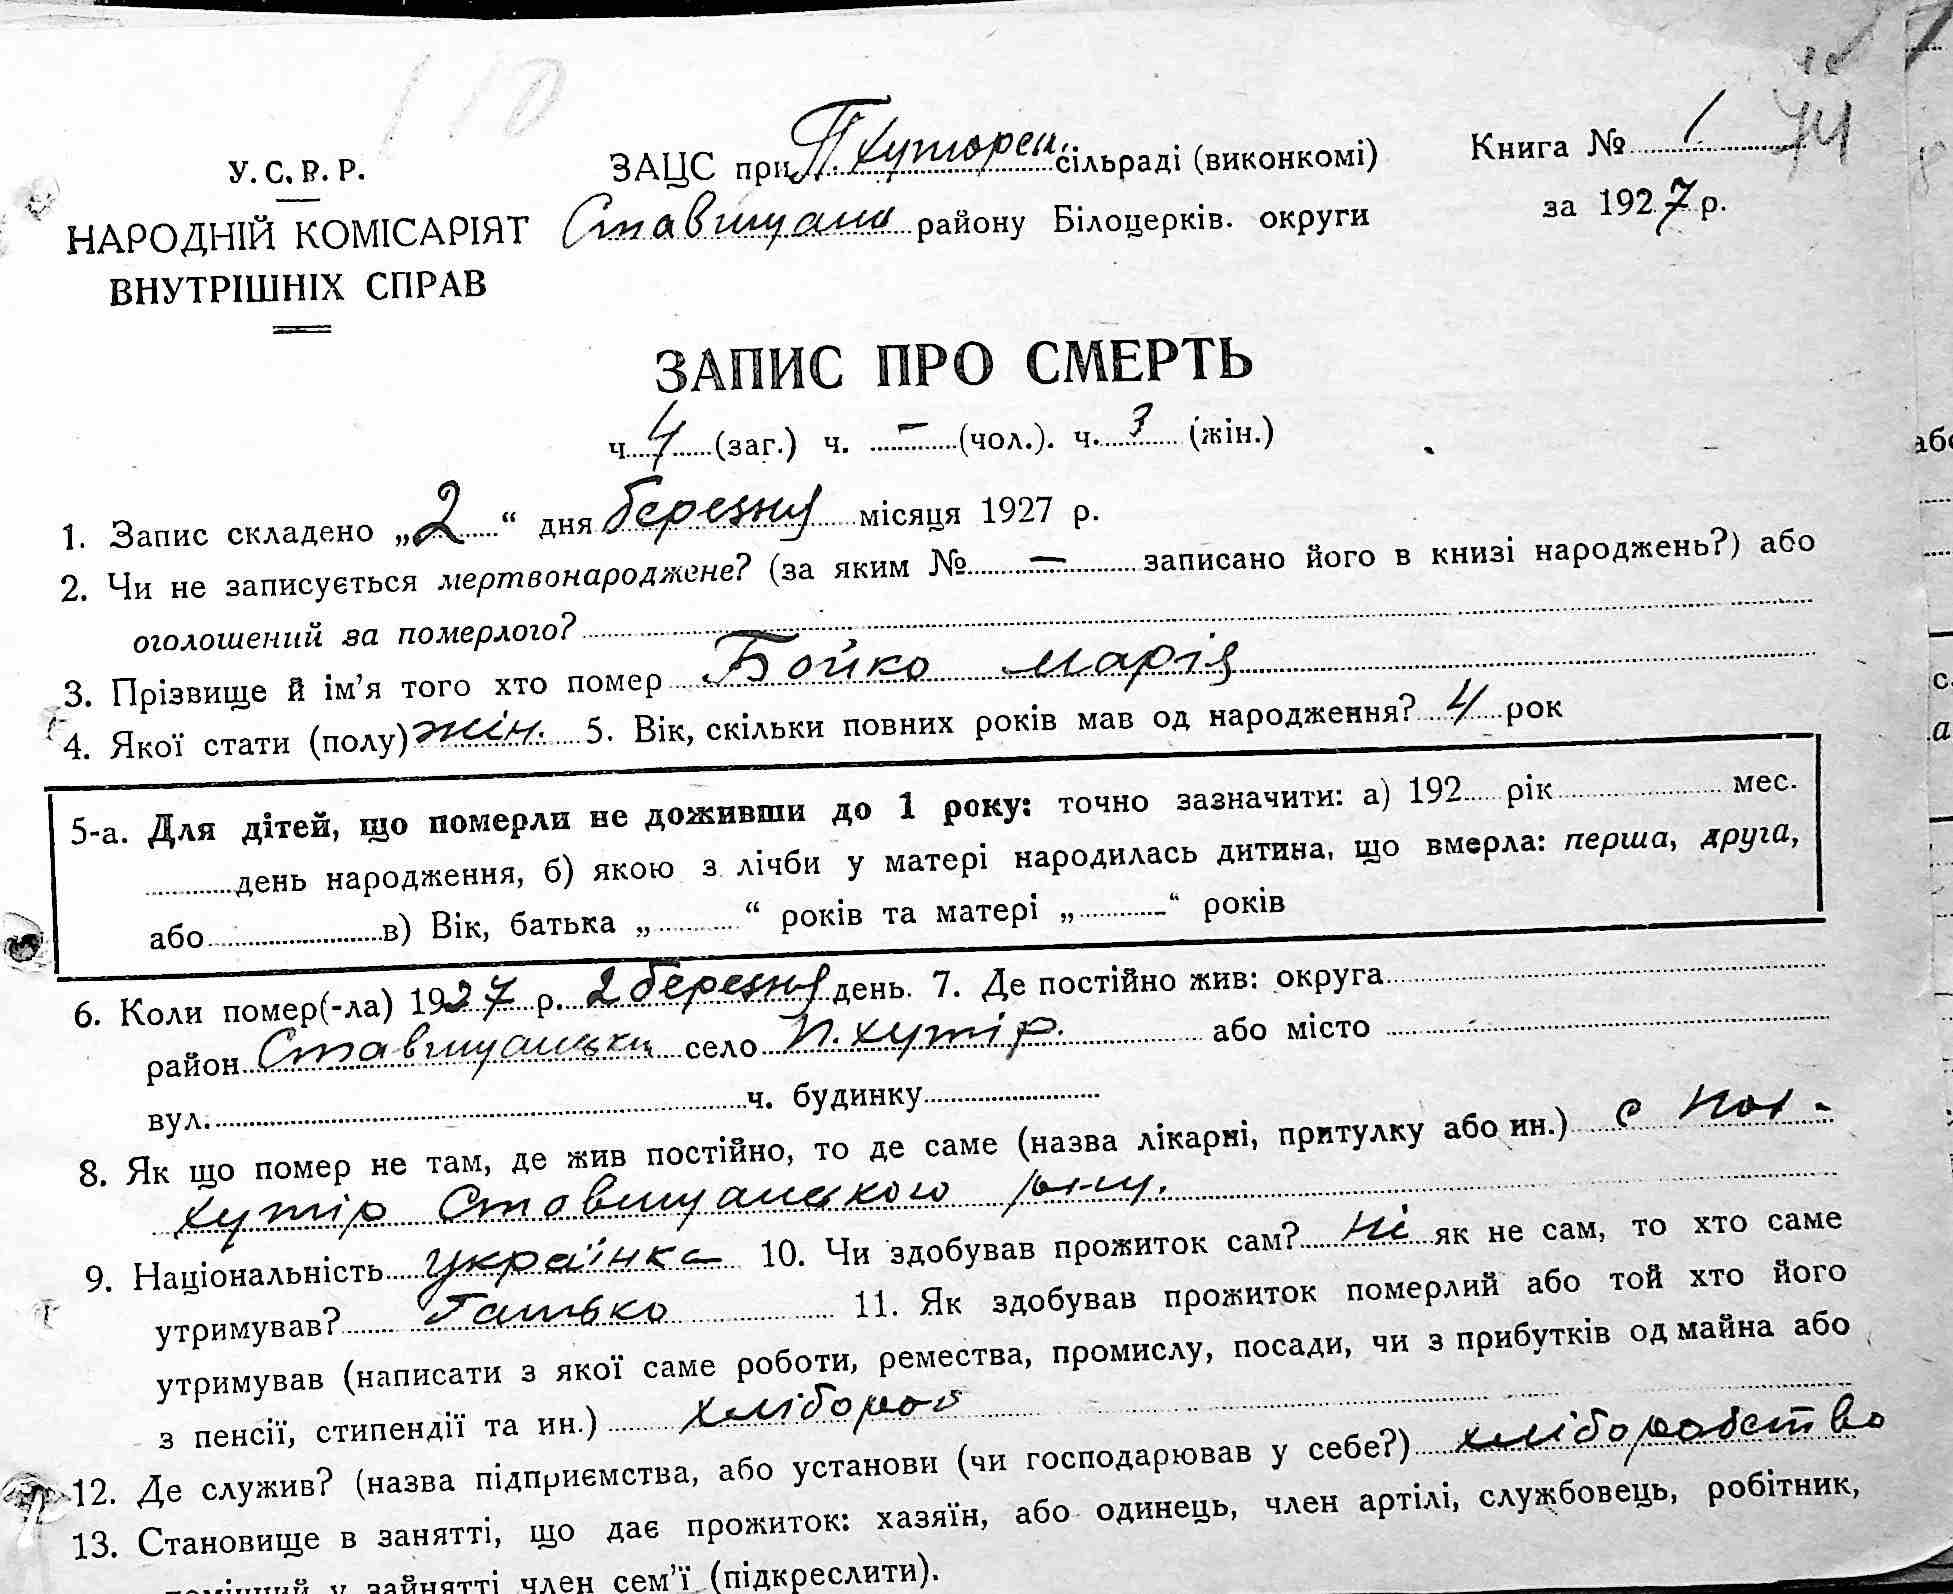 110
44
У. С. Р. Р.
НАРОДНІЙ КОМІСАРІЯТ
ВНУТРІШНІХ СПРАВ
ЗАЦС при П. Хуторен. сільраді (виконкомі)
Ставищансь району Білоцерків. округи
Книга № 1
за 1927 р.
ЗАПИС ПРО СМЕРТЬ
ч. 4 (заг.) ч. – (чол.). ч. 3 (жін.)
1. Запис складено „2“ дня березня місяця 1927 р.
2. Чи не записується мертвонароджене? (за яким № – записано його в книзі народжень?) або
оголошений за померлого?
3. Прізвище й ім’я того хто помер Бойко Марія
4. Якої стати (полу) жін. 5. Вік, скільки повних років мав од народження? 4 рок
5-а. Для дітей, що померли не доживши до 1 року: точно зазначити: а) 192 рік мес.
день народження, б) якою з лічби у матері народилась дитина, що вмерла: перша, друга,
або в) Вік, батька „ “ років та матері „ “ років
6. Коли помер(-ла) 1927 р. 2 березня день. 7. Де постійно жив: округа
район Ставищанськи село П. хутір. або місто
вул. ч. будинку
8. Як що помер не там, де жив постійно, то де саме (назва лікарні, притулку або ин.) с
хутір Ставищанського р-ну.
9. Національність українка 10. Чи здобував прожиток сам? Ні як не сам, то хто саме
утримував? Батько 11. Як здобував прожиток померлий або той хто його
утримував (написати з якої саме роботи, ремества, промислу, посади, чи з прибутків од майна або
з пенсії, стипендії та ин.) хлібороб
12. Де служив? (назва підприємства, або установи (чи господарював у себе?) хліборобство
13. Становище в занятті, що дає прожиток: хазяїн, або одинець, член артілі, службовець, робітник,
помічний у зайнятті член сем’ї (підкреслити).